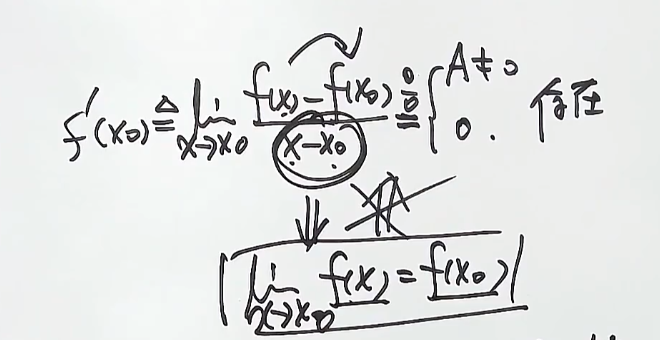 f'(x₀) ≜ lim_{x→x₀} (f(x) − f(x₀))/(x − x₀) \overset{0/0}{=} { A ≠ 0 / 0. 存在
⇓
lim_{x→x₀} f(x) = f(x₀)